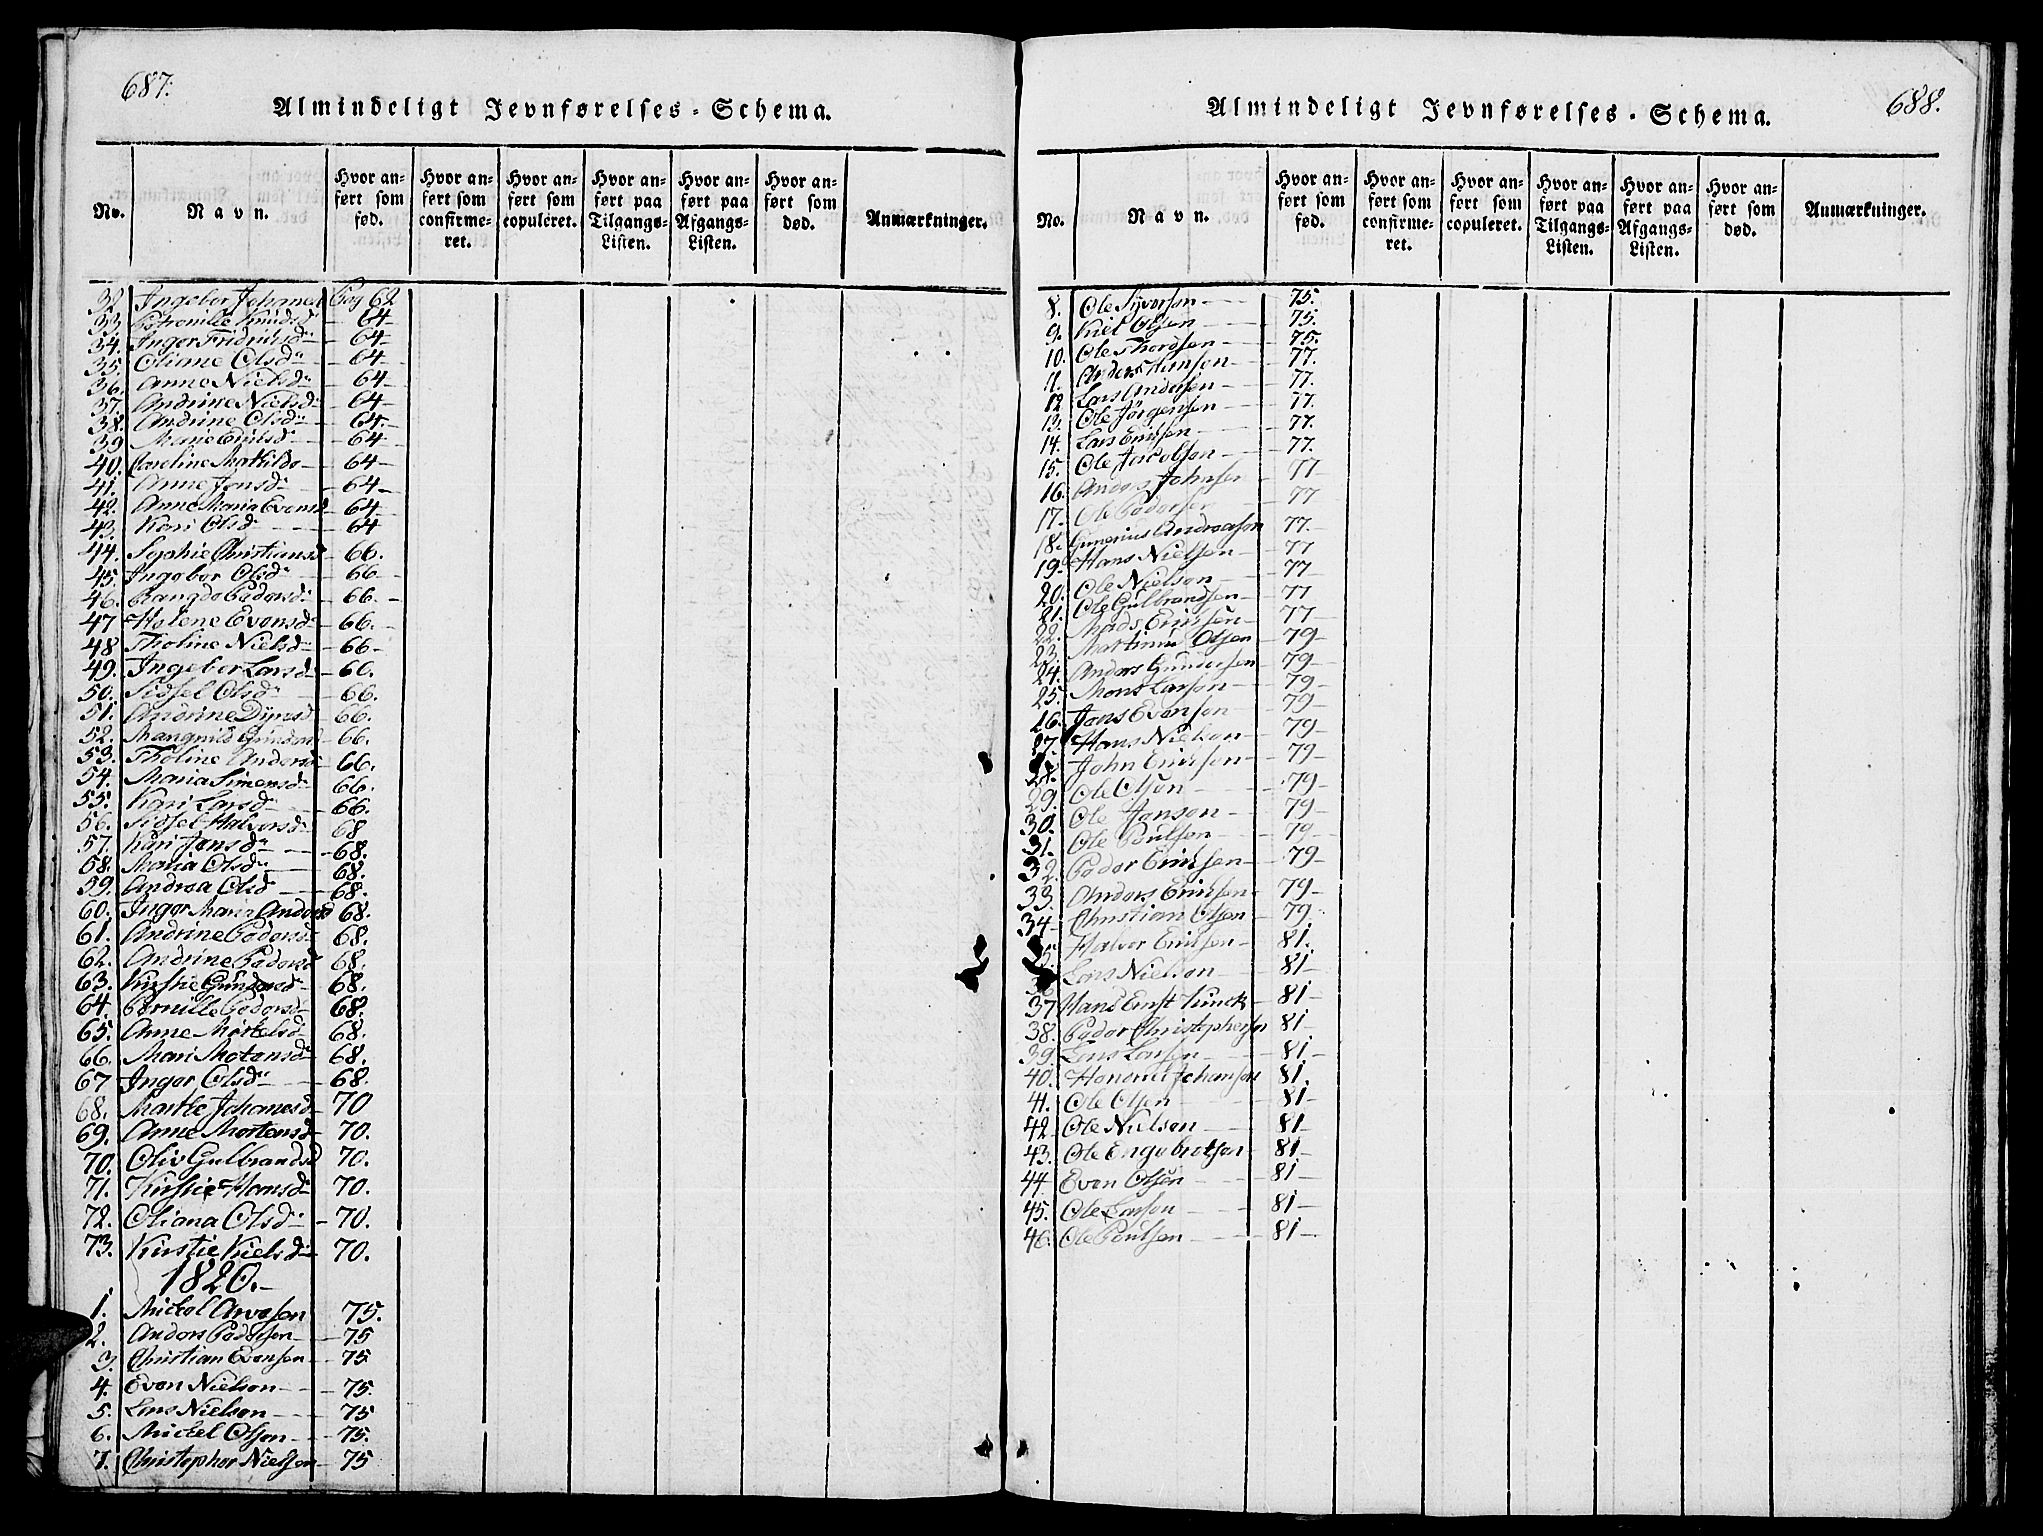 687.
Almindeligt Jevnførelses-Schema.
No.
Navn.
Hvor anført som fød.
Hvor anført som confirmeret.
Hvor anført som copuleret.
Hvor anført paa Tilgangs-Listen.
Hvor anført paa Afgangs-Listen.
Hvor anført som død.
Anmærkninger.
32. Ingebor Pag 62
33. Knudsd 64
34. Inger 64
35. Oliane Olsd 64
36. Anne Nielsd 64
37. Andrine Nielsd 64
38. Andrine Olsd 64
39 Marie 64
40. Caroline Mathilde 64
41. Anne Jensd 64
42. Anne Maria 64
43. Kari Olsd 64
44. Sophie Christiansd 66.
45. Ingebor Olsd 66
46. Pedersd 66
47 Helene Evensd 66.
48 Tholine Nielsd 66
49. Ingebor Larsd 60.
50. Sidsel Olsd 66.
51. Andrine 66.
52. 66.
53. Tholine Andersd 66.
54. Maria Simensd 66.
55. Kari Larsd 66.
56. Sidsel Halvorsd 68
57. Kari Jensd 68.
58. Maria Olsd 68.
59. Andrea Olsd 68.
60. Inger Maria 68.
61. Andrine Pedersd 68.
62. Andrine Pedersd 68.
63. Kirstie Gundersd 68.
64. Pernille Pedersd 68.
65. Anne 68.
66. Mari 68.
67 Inger Olsd 68.
68. Marthe Johanesd 70
69. Anne Mortensd 70.
70. Oliv Gulbrandsd 70.
71. Kirstie Hansd 70.
72. Oliana Olsd 70.
73. Kirstie Kielsd 70.
1820.
1. Mickel 75.
2. Anders Pedersen 75
3. Christian Evensen 75
4. Even Nielsen 75.
5. Lars Nielsen 75
6. Mickel Olsen 75.
7. Christopher Nielsen 75
688.
Almindeligt Jevnførelses-Schema.
No.
Navn.
Hvor anført som fød.
Hvor anført som confirmeret.
Hvor anført som copuleret.
Hvor anført paa Tilgangs-Listen.
Hvor anført paa Afgangs-Listen.
Hvor anført som død.
Anmærkninger.
8. Ole Syversen 75.
9. Kiel Olsen 75.
10. Ole Thordsen 75.
11. Anders Hansen 77.
12 Lars Andersen 77.
13. Ole Jørgensen 77.
14. Lars Ericksen 77.
15. Ole Jacobsen 77.
16. Anders Johnsen 77
17. Ole Pedersen 77
18. Gunerius Andreasen 77.
19. Hans Nielsen 77
20. Ole Nielsen 77
21. Ole Gulbrandsen 77
22. Mads Ericksen 77
23. Martinus Olsen 79
24. Anders Gundersen 79
25. Mons Larsen 79
16. Jens Evensen 79
27. Hans Nielsen 79
John Ericksen 79
29. Ole Olsen 79
30. Ole Jensen 79
31. Ole Poulsen 79
32. Peder Ericksen 79
33. Anders Ericksen 79
34 Christian Olsen 79
Halvor Ericksen 81.
Lars Nielsen 81
37 Hans Ernst 81
38. Peder Christophersen 81
39. Lars Larsen 81
40. Johansen 81.
41. Ole Olsen 81
42 Ole Nielsen 81
43. Ole Engebretsen 81
44 Even Olsen 81
45. Ole Larsen 81
46. Ole Poulsen 81